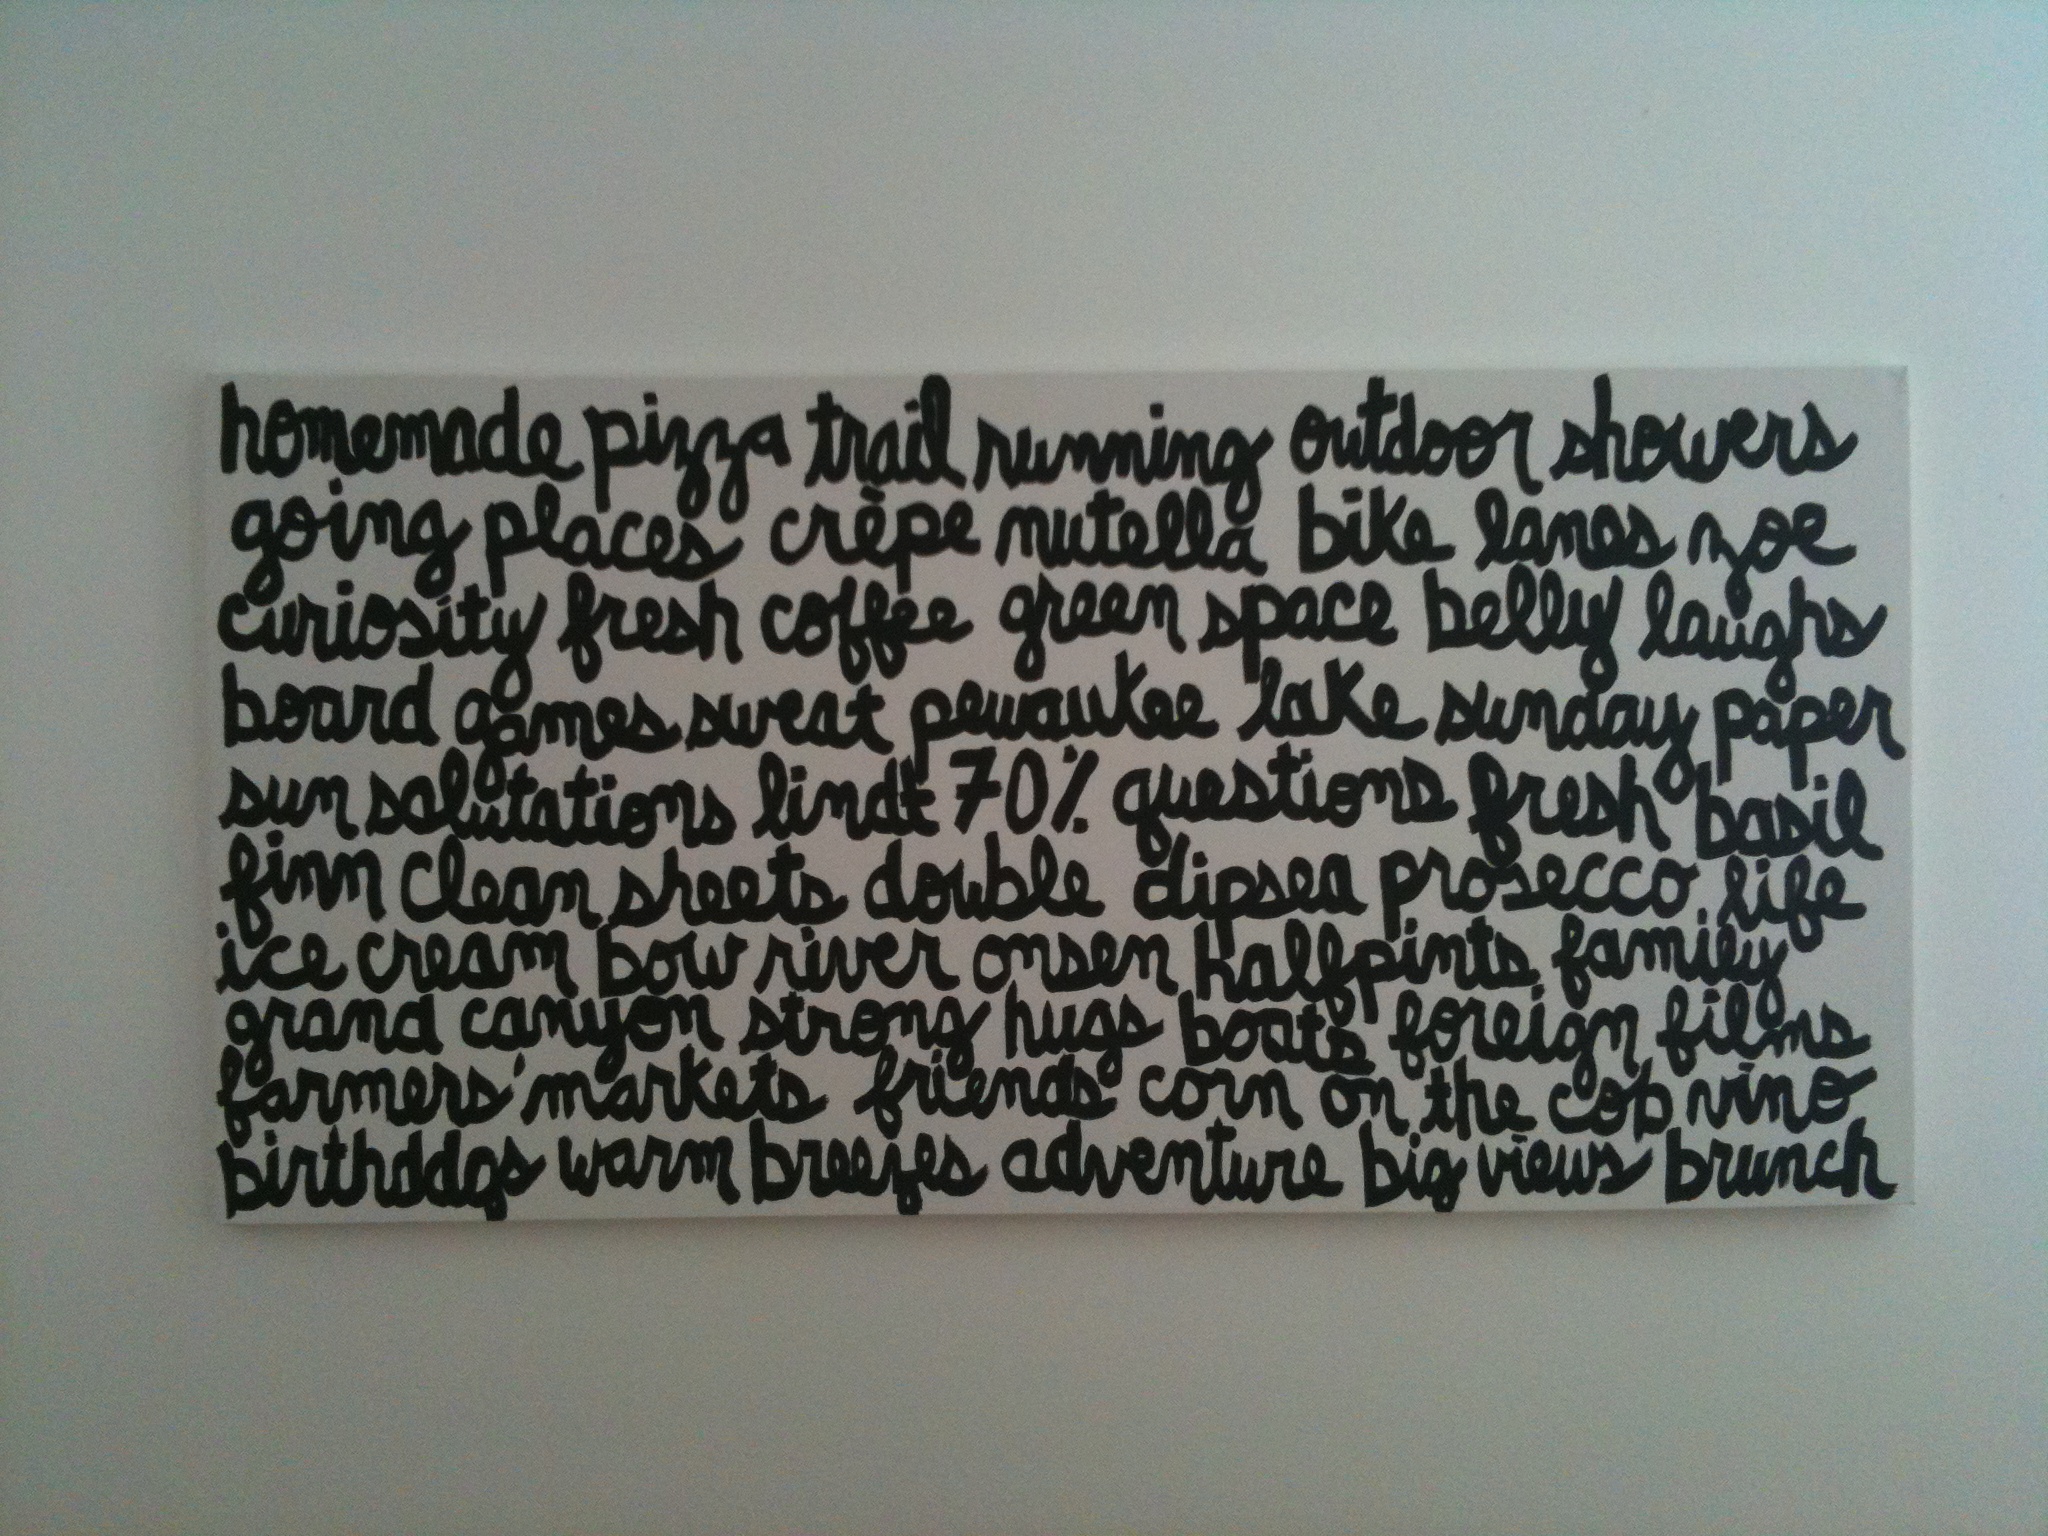 homemade pizza trail running outdoor showers
going places crêpe nutella bike lanes zoe
curiosity fresh coffee green space belly laughs
board games sweat pewaukee lake sunday paper
sun salutations lindt 70% questions fresh basil
finn clean sheets double dipsea prosecco life
ice cream bow river onsen halfpints family
grand canyon strong hugs boats foreign films
farmers' markets friends corn on the cob vino
birthdays warm breezes adventure big views brunch